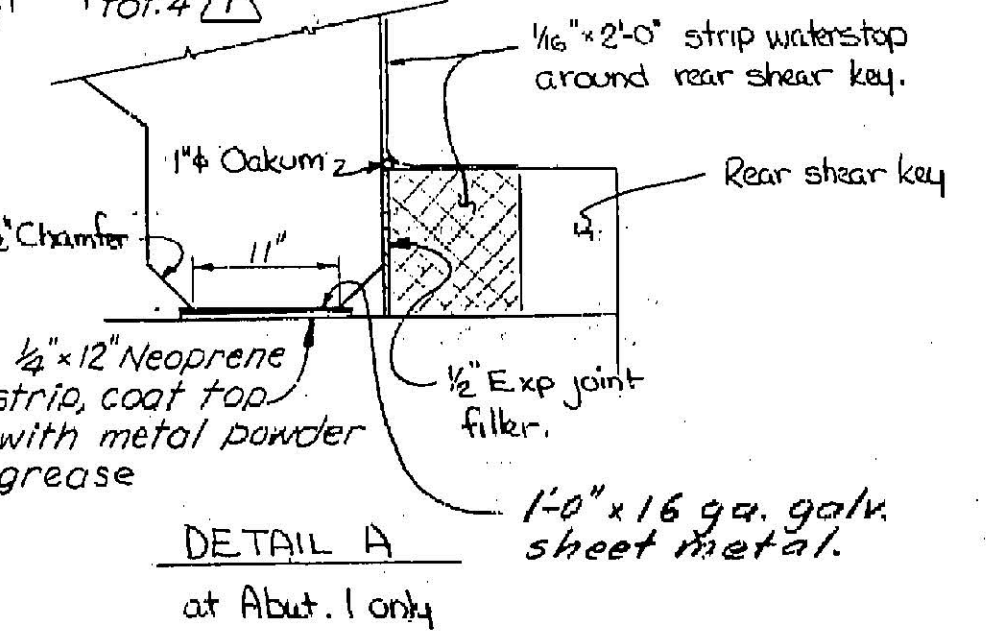 Tot. 4 1
1/16" x 2'-0" strip waterstop
around rear shear key.
1"φ Oakum
Rear shear key
2" Chamfer
11"
1/4" x 12" Neoprene
strip, coat top
with metal powder
grease
1/2" Exp joint
filler.
1'-0" x 16 ga. galv.
sheet metal.
DETAIL A
at Abut. 1 only